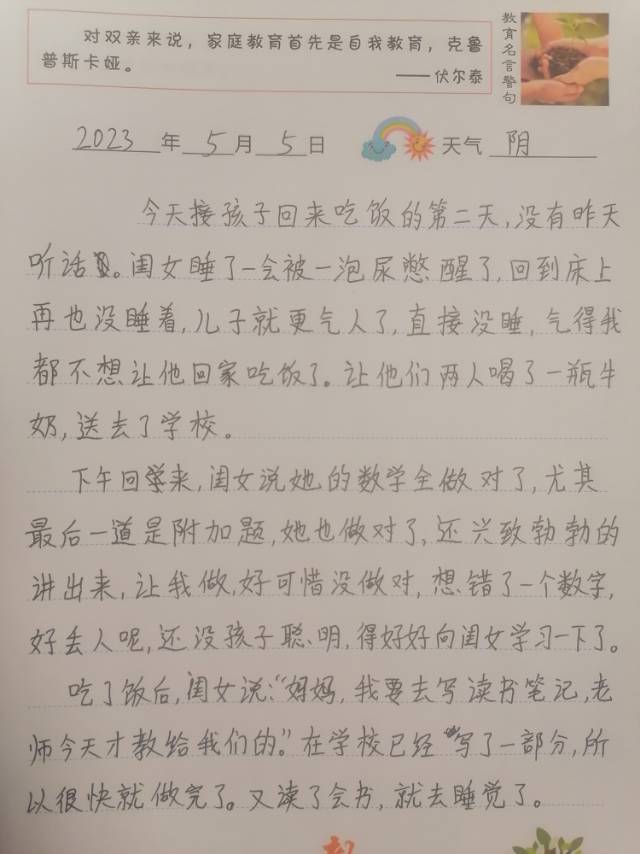 对双亲来说，家庭教育首先是自我教育，克鲁
普斯卡娅。
——伏尔泰
教育名言警句
2023年5月5日 天气 阴
今天接孩子回来吃饭的第二天,没有昨天
听话。闺女睡了一会被一泡尿憋醒了,回到床上
再也没睡着,儿子就更气人了,直接没睡,气得我
都不想让他回家吃饭了。让他们两人喝了一瓶牛
奶,送去了学校。
下午回来,闺女说她的数学全做对了,尤其
最后一道是附加题,她也做对了,还兴致勃勃的
讲出来,让我做,好可惜没做对,想错了一个数字,
好丢人呢,还没孩子聪明,得好好向闺女学习一下了。
吃了饭后,闺女说:“妈妈,我要去写读书笔记,老
师今天才教给我们的。”在学校已经写了一部分,所
以很快就做完了。又读了会书,就去睡觉了。